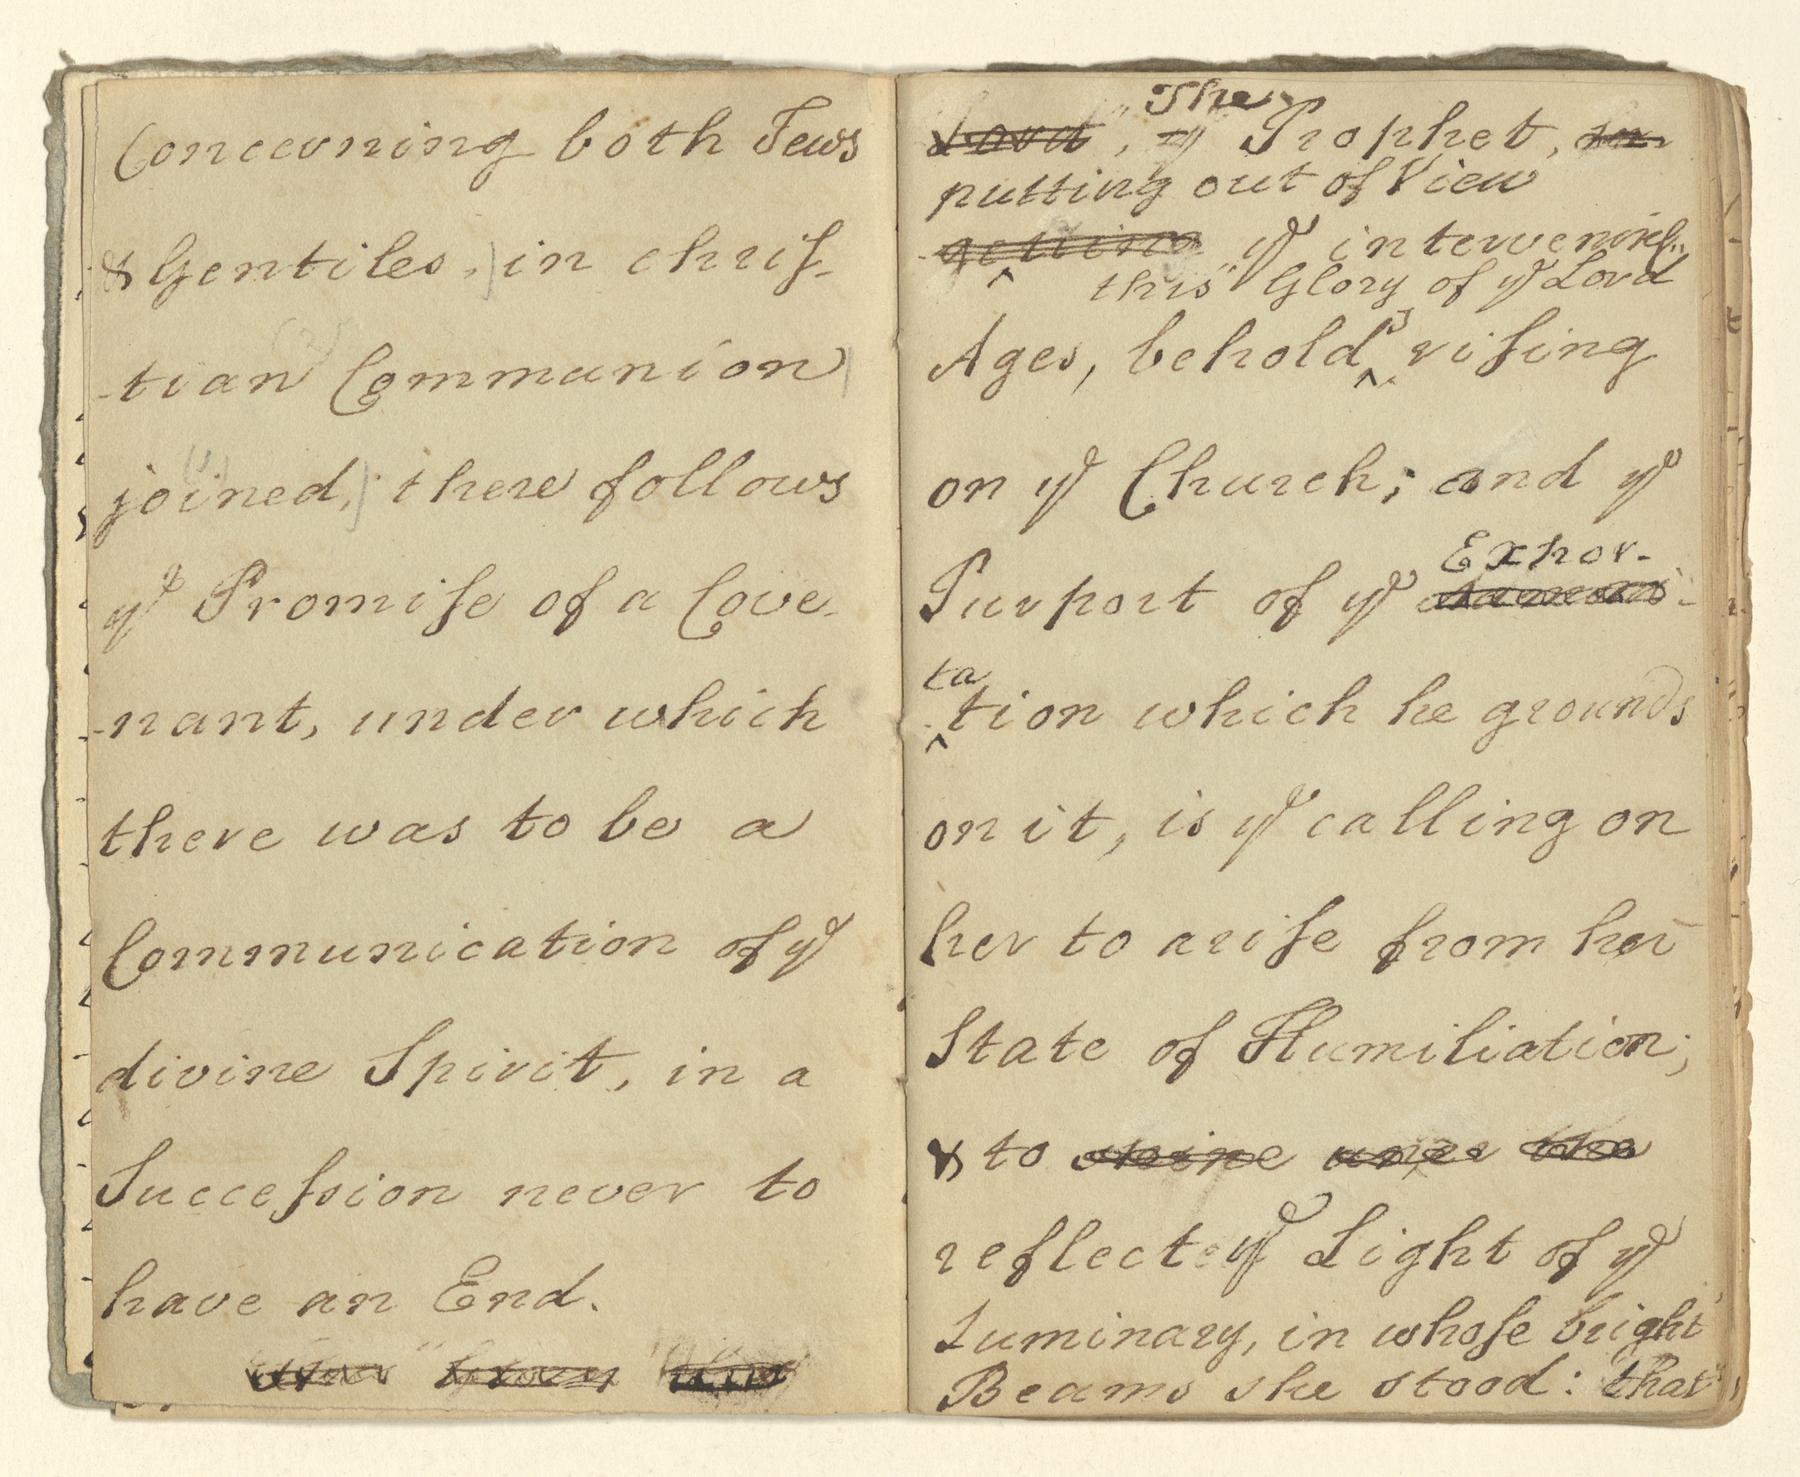 Concerning both Jews
& Gentiles, in chris-
-tian Communion
joined, there follows
yͤ Promise of a Cove-
-nant, under which
there was to be a
Communication of yͤ
divine Spirit, in a
Succession never to
have an End.
The
Lord", yͤ Prophet,
putting out of View
getting yͤ intervening
this "Glory of yͤ Lord"
Ages, beholds rising
on yͤ Church; and yͤ
Exhor-
Purport of yͤ
ta
-tion which he grounds
on it, is yͤ calling on
her to arise from her
State of Humiliation;
& to shine
reflect yͤ Light of yͤ
Luminary, in whose bright
Beams she stood: that